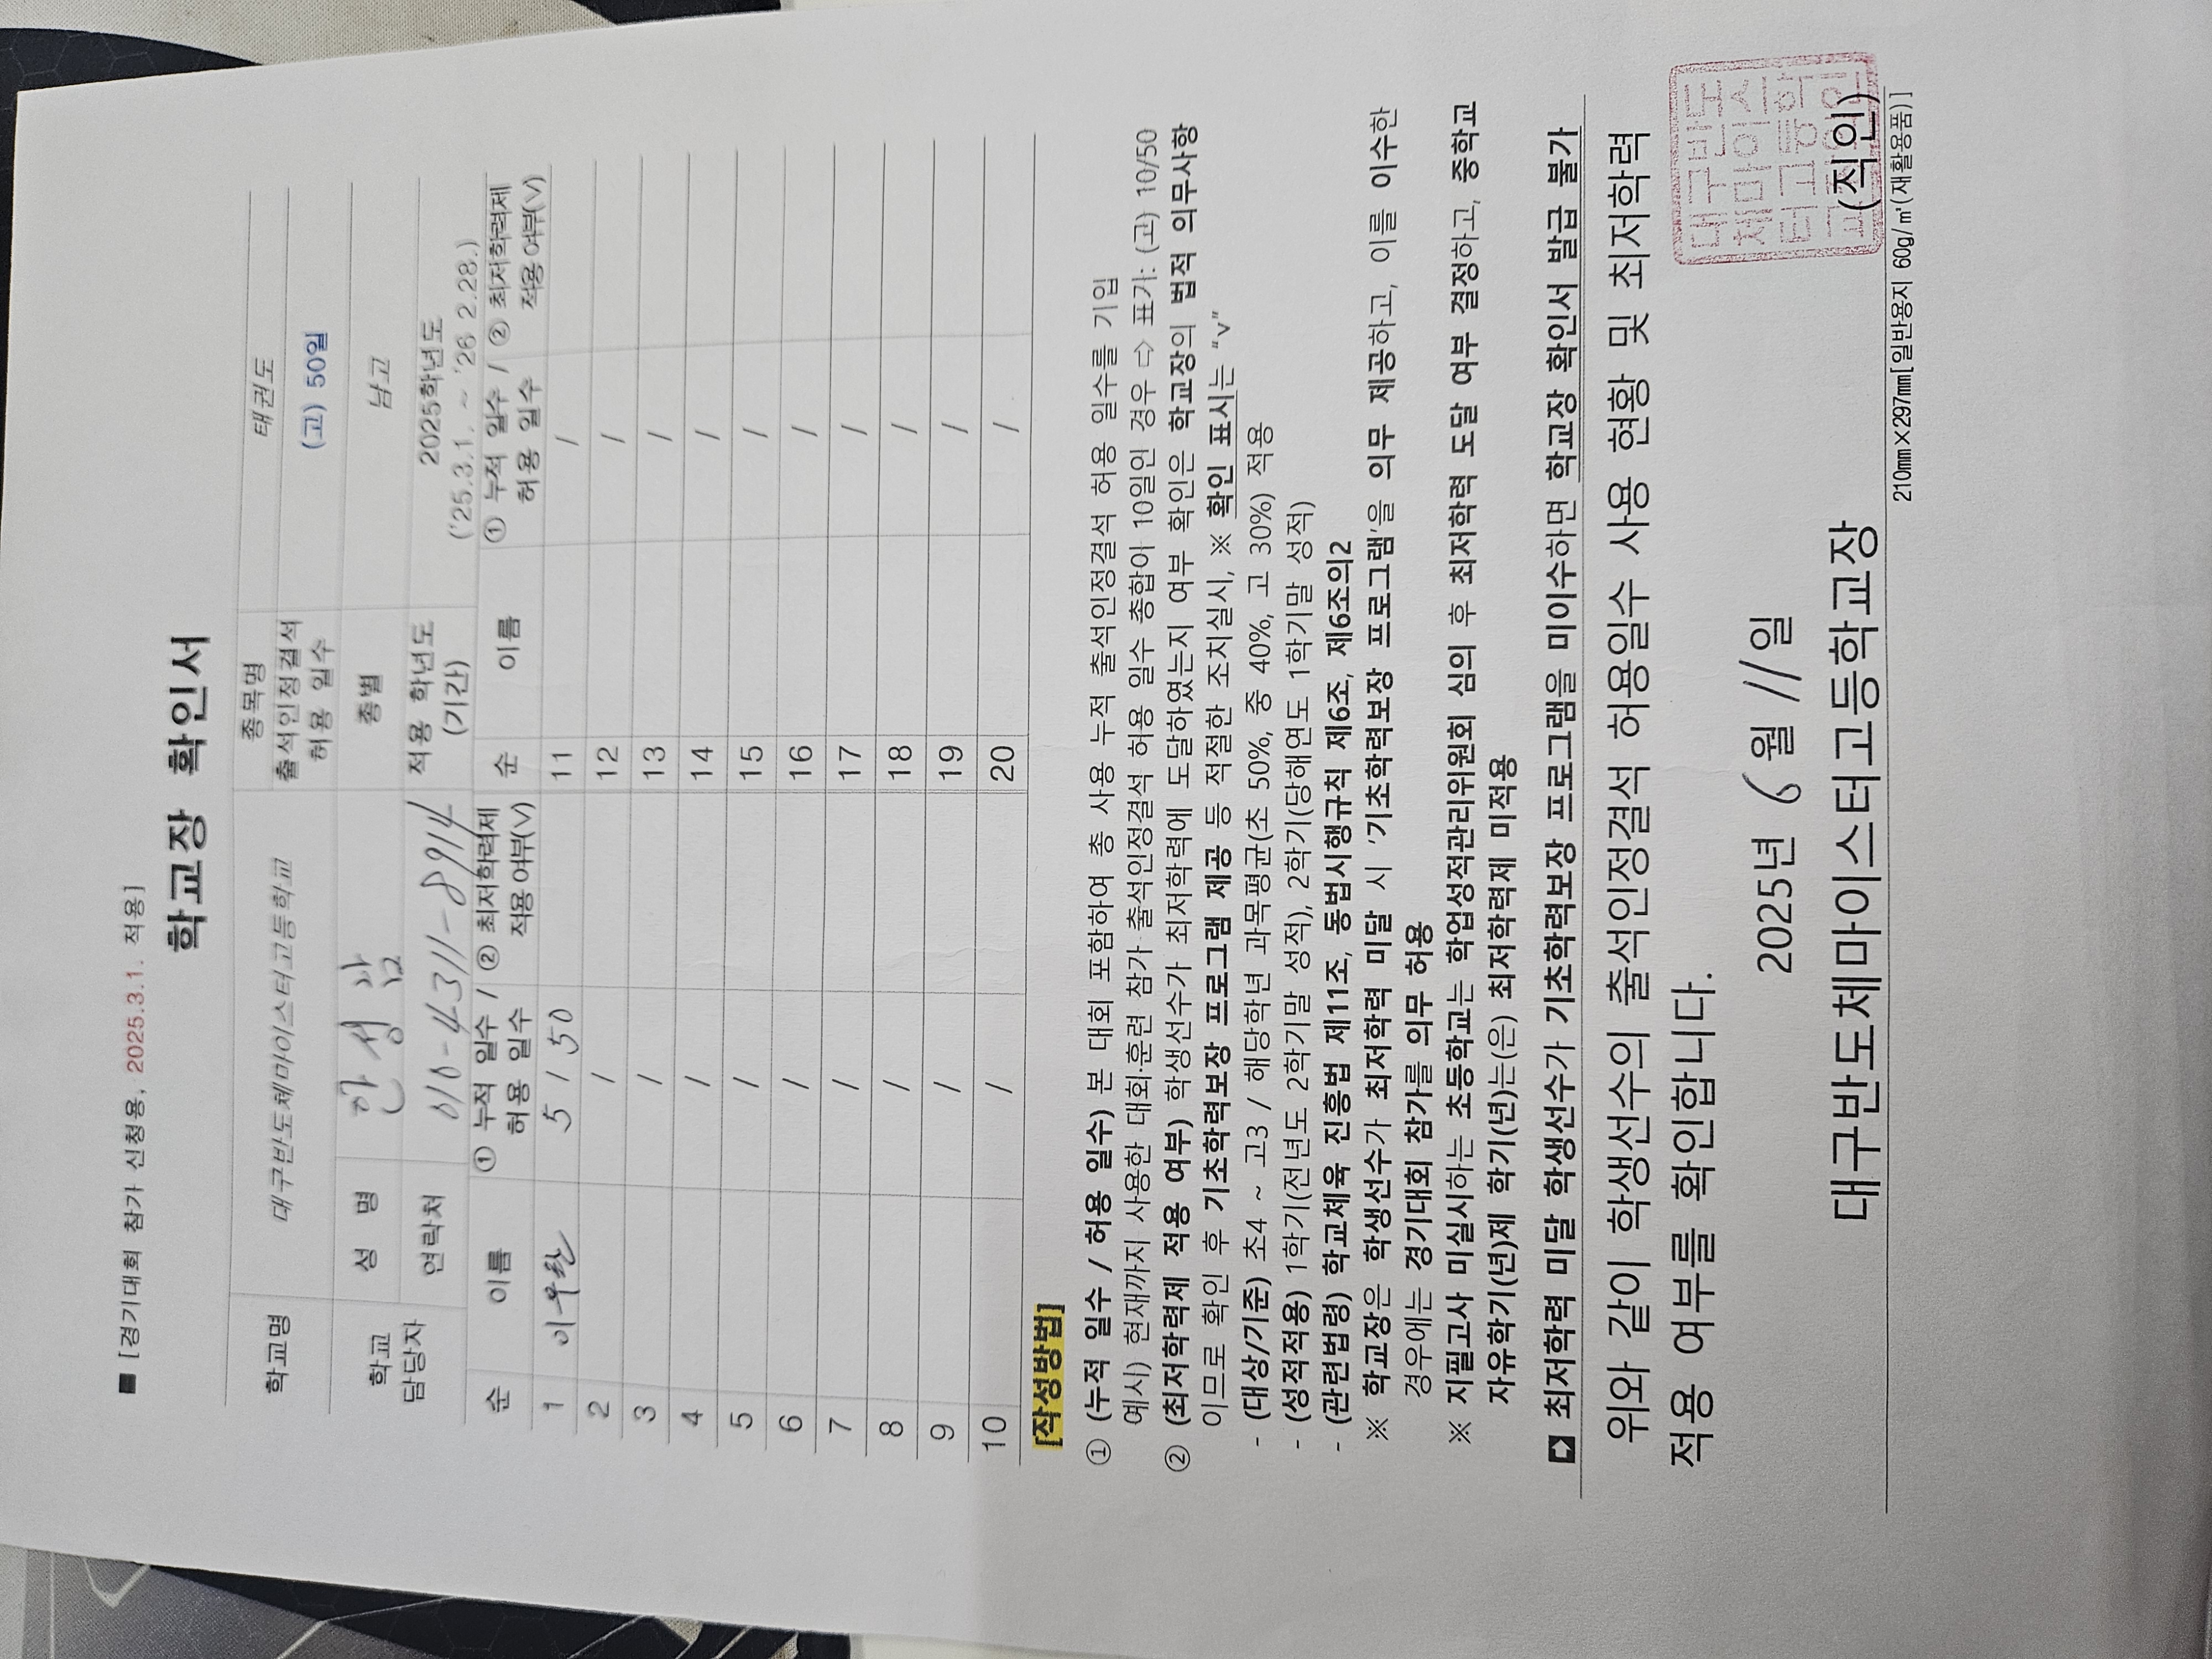 ■ [경기대회 참가 신청용, 2025.3.1. 적용]
학교장 확인서
학교명 대구반도체마이스터고등학교 종목명 태권도
출석인정결석 허용 일수 (고) 50일
학교 담당자 성 명 안성환 종별 남고
연락처 010-4311-8914 적용 학년도 (기간) 2025학년도 ('25.3.1. ~ '26 2.28.)
순 이름 ① 누적 일수 / 허용 일수 ② 최저학력제 적용여부(V) 순 이름 ① 누적 일수 / 허용 일수 ② 최저학력제 적용여부(V)
1 이우환 5 / 50 11 /
2 / 12 /
3 / 13 /
4 / 14 /
5 / 15 /
6 / 16 /
7 / 17 /
8 / 18 /
9 / 19 /
10 / 20 /
[작성방법]
① (누적 일수 / 허용 일수) 본 대회 포함하여 총 사용 누적 출석인정결석 허용 일수를 기입
예시) 현재까지 사용한 대회·훈련 참가 출석인정결석 허용 일수 총합이 10일인 경우 ⇨ 표기: (고) 10/50
② (최저학력제 적용 여부) 학생선수가 최저학력에 도달하였는지 여부 확인은 학교장의 법적 의무사항
이므로 확인 후 기초학력보장 프로그램 제공 등 적절한 조치실시, ※ 확인 표시는 "v"
- (대상/기준) 초4 ~ 고3 / 해당학년 과목평균(초 50%, 중 40%, 고 30%) 적용
- (성적적용) 1학기(전년도 2학기말 성적), 2학기(당해연도 1학기말 성적)
- (관련법령) 학교체육 진흥법 제11조, 동법시행규칙 제6조, 제6조의2
※ 학교장은 학생선수가 최저학력 미달 시 '기초학력보장 프로그램'을 의무 제공하고, 이를 이수한
경우에는 경기대회 참가를 의무 허용
※ 지필고사 미실시하는 초등학교는 학업성적관리위원회 심의 후 최저학력 도달 여부 결정하고, 중학교
자유학기(년)제 학기(년)는(은) 최저학력제 미적용
최저학력 미달 학생선수가 기초학력보장 프로그램을 미이수하면 학교장 확인서 발급 불가
위와 같이 학생선수의 출석인정결석 허용일수 사용 현황 및 최저학력
적용 여부를 확인합니다.
2025년 6월 11일
대구반도체마이스터고등학교장 (직인)
대구반도
체마이스
터고등학
교장인
210㎜×297㎜[일반용지 60g/㎡(재활용품)]